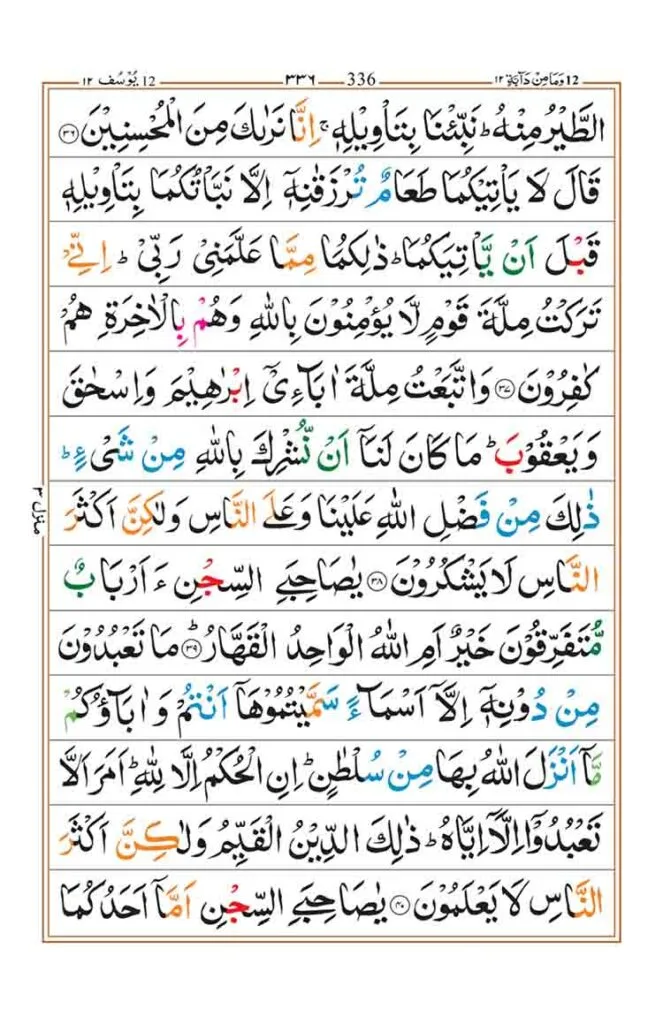 وَمَا مِنْ دَآبَّةٍ ١٢ 12 336 ٣٣٦ يُوْسُف ١٢ 12
الطَّيْرُ مِنْهُ ؕ نَبِّئْنَا بِتَاْوِيْلِهٖ ۚ اِنَّا نَرٰىكَ مِنَ الْمُحْسِنِيْنَ ﴿۳۶﴾
قَالَ لَا يَاْتِيْكُمَا طَعَامٌ تُرْزَقٰنِهٖۤ اِلَّا نَبَّاْتُكُمَا بِتَاْوِيْلِهٖ
قَبْلَ اَنْ يَّاْتِيَكُمَا ؕ ذٰلِكُمَا مِمَّا عَلَّمَنِىْ رَبِّىْ ؕ اِنِّىْ
تَرَكْتُ مِلَّةَ قَوْمٍ لَّا يُؤْمِنُوْنَ بِاللّٰهِ وَهُمْ بِالْاٰخِرَةِ هُمْ
كٰفِرُوْنَ ﴿۳۷﴾ وَاتَّبَعْتُ مِلَّةَ اٰبَآءِىْۤ اِبْرٰهِيْمَ وَاِسْحٰقَ
وَيَعْقُوْبَ ؕ مَا كَانَ لَنَاۤ اَنْ نُّشْرِكَ بِاللّٰهِ مِنْ شَىْءٍ ؕ
ذٰلِكَ مِنْ فَضْلِ اللّٰهِ عَلَيْنَا وَعَلَى النَّاسِ وَلٰكِنَّ اَكْثَرَ
النَّاسِ لَا يَشْكُرُوْنَ ﴿۳۸﴾ يٰصَاحِبَىِ السِّجْنِ ءَاَرْبَابٌ
مُّتَفَرِّقُوْنَ خَيْرٌ اَمِ اللّٰهُ الْوَاحِدُ الْقَهَّارُ ؕ﴿۳۹﴾ مَا تَعْبُدُوْنَ
مِنْ دُوْنِهٖۤ اِلَّاۤ اَسْمَآءً سَمَّيْتُمُوْهَاۤ اَنْتُمْ وَاٰبَآؤُكُمْ
مَّاۤ اَنْزَلَ اللّٰهُ بِهَا مِنْ سُلْطٰنٍ ؕ اِنِ الْحُكْمُ اِلَّا لِلّٰهِ ؕ اَمَرَ اَلَّا
تَعْبُدُوْۤا اِلَّاۤ اِيَّاهُ ؕ ذٰلِكَ الدِّيْنُ الْقَيِّمُ وَلٰكِنَّ اَكْثَرَ
النَّاسِ لَا يَعْلَمُوْنَ ﴿۴۰﴾ يٰصَاحِبَىِ السِّجْنِ اَمَّاۤ اَحَدُكُمَا
منزل ٣